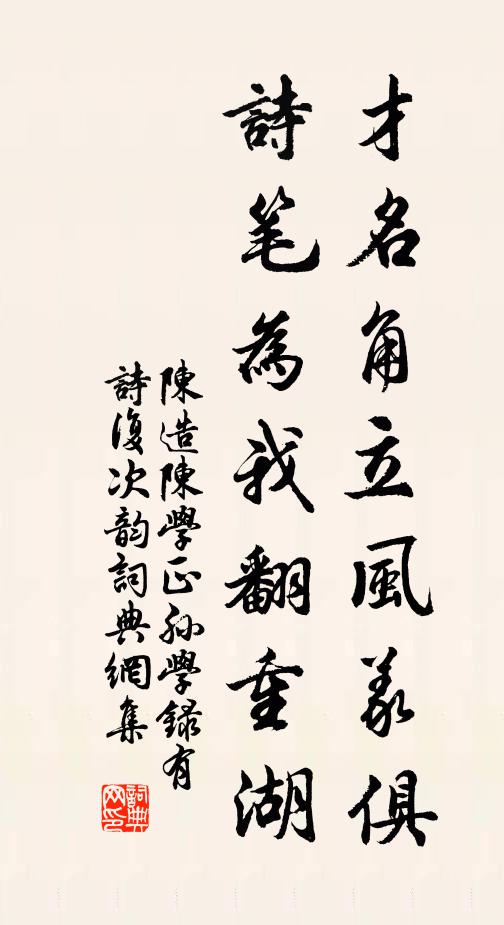 才名角立風義俱
詩笔為我翻重湖
陳造陳學正孫學録有
詩復次韵詞典網集
詞典网印